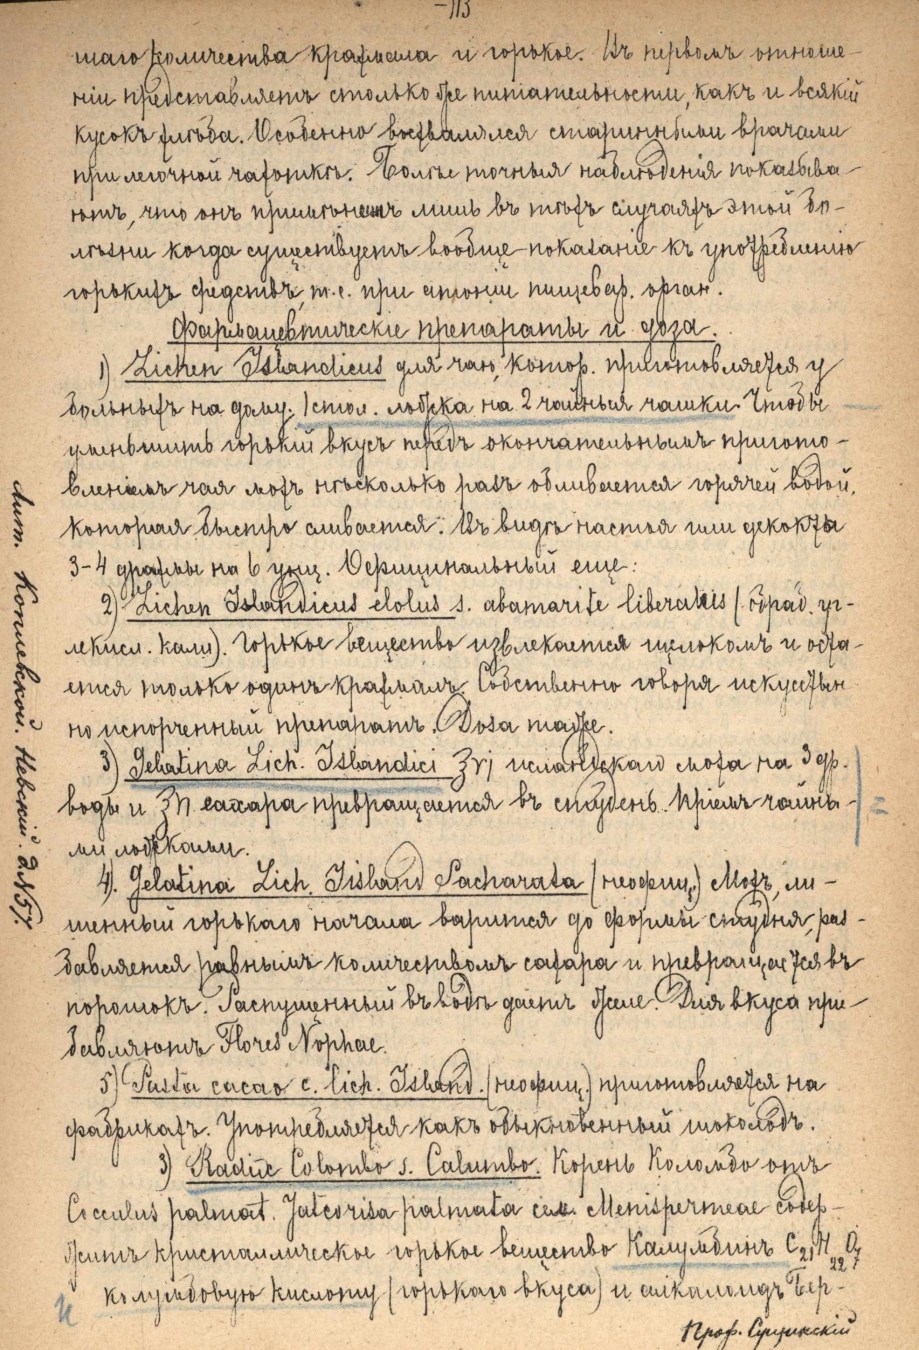 -113
шаго количества крахмала и горькое. Въ первомъ отноше-
нiи представляетъ столько же питательности, какъ и всякiй
кусокъ хлѣба. Особенно восхвалялся старинными врачами
при легочной чахоткѣ. Болѣе точныя наблюденiя показыва-
ютъ, что онъ примѣнимъ лишь въ тѣхъ случаяхъ этой бо-
лѣзни когда существуетъ вообще показанiе къ употребленiю
горькихъ средствъ, т.е. при атонiи пищевар. орган.
Фармацевтическiе препараты и доза.
1) Lichen Islandicus для чаю, котор. приготовляется у
больныхъ на дому. 1 стол. ложка на 2 чайныя чашки. Чтобы
уменьшить горькiй вкусъ передъ окончательнымъ пригото-
вленiемъ чая мохъ нѣсколько разъ обливается горячей водой,
которая быстро сливается. Въ видѣ настоя или декокта
3-4 драхмы на 6 унц. Официнальный еще:
2) Lichen Islandicus elotus s. abamarite liberatus (обраб. уг-
лекисл. кали). Горькое вещество извлекается щелокомъ и оста-
ется только одинъ крахмалъ. Собственно говоря искусствен
но испорченный препаратъ. Dosa таже.
3) Gelatina Lich. Islandici ʒvj исландскаго моха на 3 др.
воды и сахара превращается въ студень. Прiемъ чайны-
ми ложками.
4). Gelatina Lich. Iisland Sacharata (неофиц.) Мохъ, ли-
шенный горькаго начала варится до формы студня, раз-
бавляется равнымъ количествомъ сахара и превращается въ
порошокъ. Распущенный въ водѣ даетъ желе. Для вкуса при-
бавляютъ Flores Naphae.
5) Pasta cacao c. lich. Island. (неофиц.) приготовляется на
фабрикахъ. Употребляется какъ обыкновенный шоколадъ.
3) Radix Colombo s. Calumbo. Корень Коломбо отъ
Cocculus palmat. Jatcorisa palmata сем. Menispermeae содер-
житъ кристаллическое горькое вещество Калумбинъ C₂₁H₂₂O₇
колумбовую кислоту (горькаго вкуса) и алкалоидъ Бер-
Проф. Сущинскiй
Лит. Невскiй. д №57